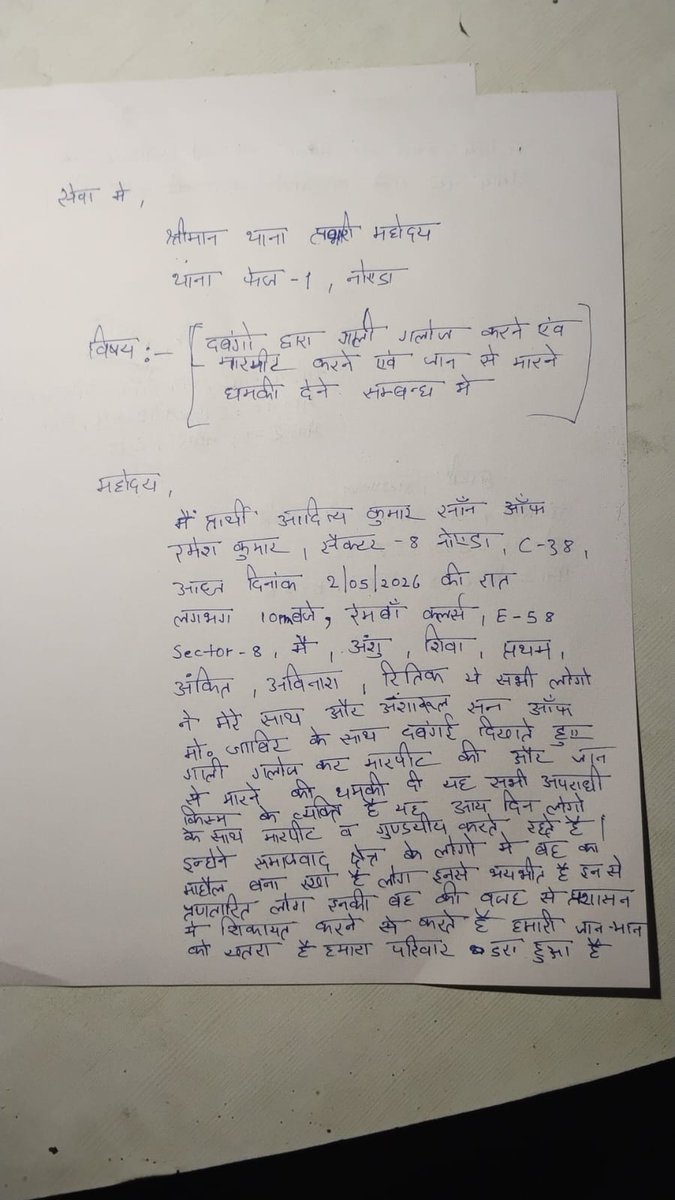 सेवा मे,
श्रीमान थाना प्रभारी महोदय
थाना फेज -1, नोएडा
विषय :- दबंगो द्वारा गाली गलोज करने एंव
मारपीट करने एवं जान से मारने
धमकी देने सम्बन्ध मे
महोदय,
मैं प्रार्थी आदित्य कुमार सॉन ऑफ
रमेश कुमार, सैक्टर -8 नोएडा, C-38,
आज दिनांक 2/05/2026 की रात
लगभग 10 बजे, क्लर्स, E-58
Sector-8, मै, अंशु, शिवा, प्रथम,
अंकित, अविनाश, रितिक ये सभी लोगो
ने मेरे साथ और सन ऑफ
मो. के साथ दबंगई दिखाते हुए
गाली गलोज कर मारपीट की और जान
से मारने की धमकी दी यह सभी अपराधी
किस्म के व्यक्ति है यह आय दिन लोगो
के साथ मारपीट व करते रहते है।
इन्होने क्षेत्र के लोगो मे का
माहौल बना रखा है लोग इनसे भयभीत है इन से
लोग इनकी की वजह से प्रशासन
मे शिकायत करने से करते है हमारी जान-मान
को खतरा है हमारा परिवार डरा हुआ है